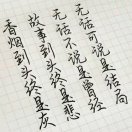 无话可说是结局
无话不说是曾经
故事到头终是悲
香烟到头终是灰